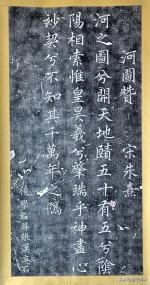 河圖贊　宋朱熹
河之圖兮開天地賾五十有五兮陰
陽相索惟皇昊羲兮肇端乎神盡心
妙契兮不知其千萬年之隔
後學